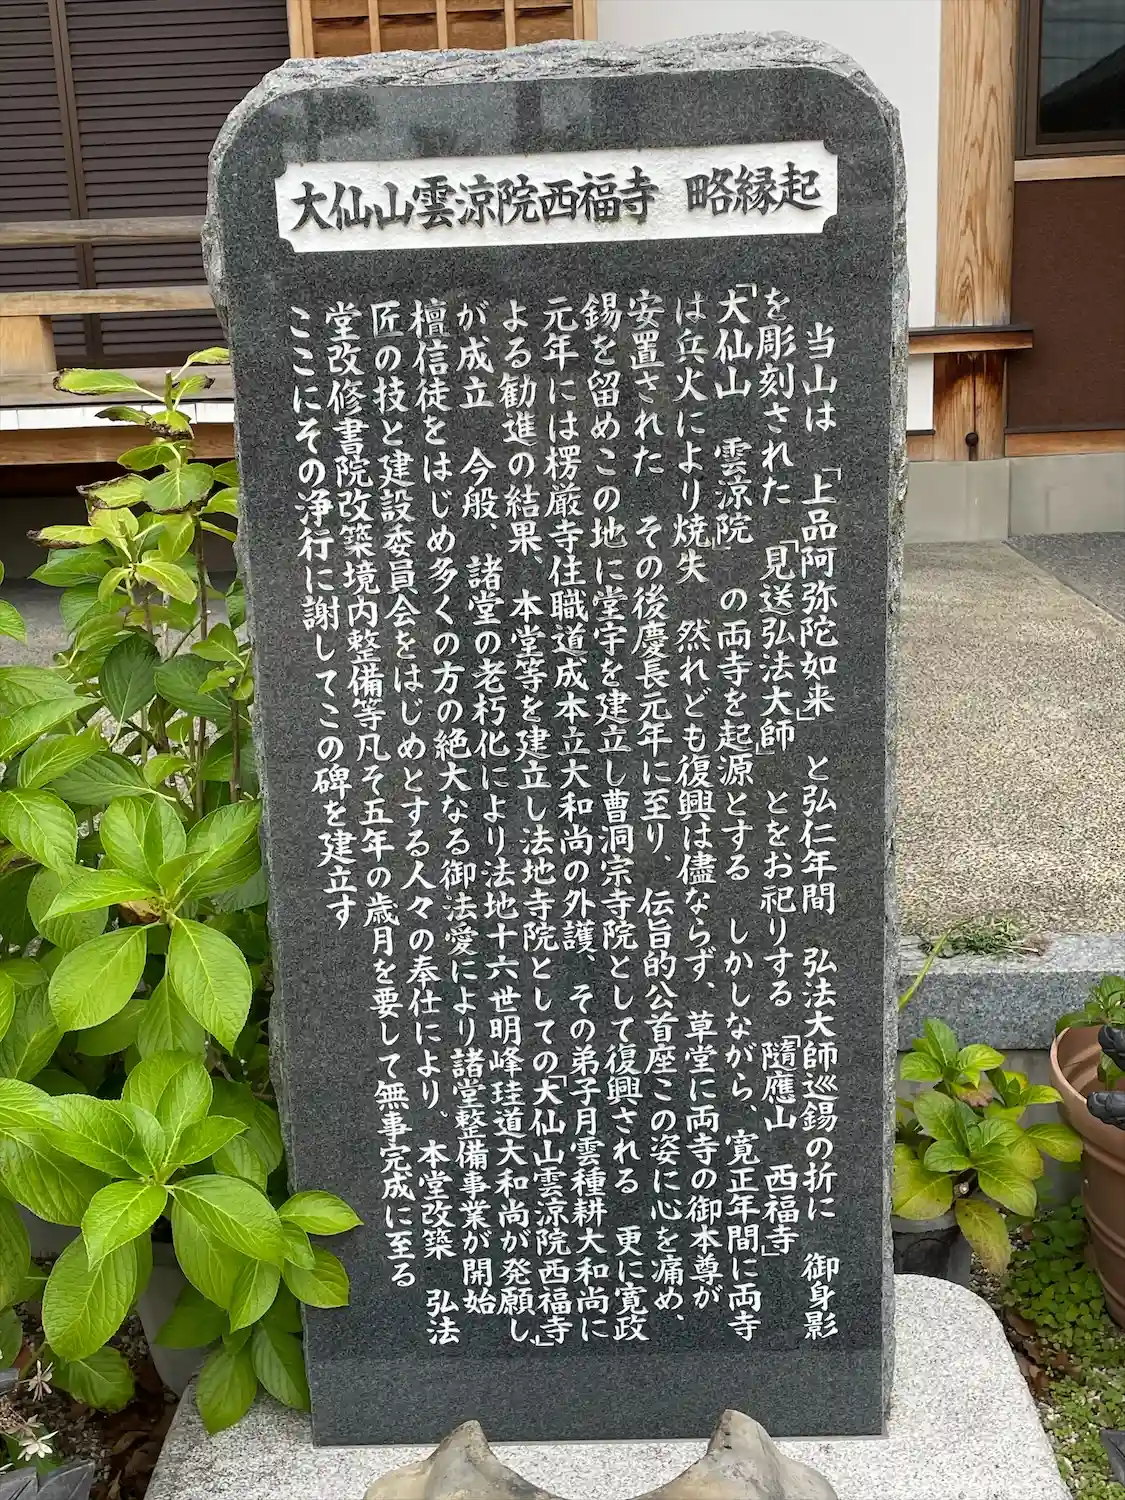 大仙山雲涼院西福寺 略縁起
当山は 「上品阿弥陀如来」 と弘仁年間 弘法大師巡錫の折に 御身影
を彫刻された 「見送弘法大師」 とをお祀りする 「隨應山 西福寺」
「大仙山 雲涼院」 の両寺を起源とする しかしながら、寛正年間に両寺
は兵火により焼失 然れども復興は儘ならず、草堂に両寺の御本尊が
安置された その後慶長元年に至り、伝旨的公首座この姿に心を痛め、
錫を留めこの地に堂宇を建立し曹洞宗寺院として復興される 更に寛政
元年には楞厳寺住職道成本立大和尚の外護、その弟子月雲種耕大和尚に
よる勧進の結果、本堂等を建立し法地寺院としての「大仙山雲涼院西福寺」
が成立 今般、諸堂の老朽化により法地十六世明峰珪道大和尚が発願し、
檀信徒をはじめ多くの方の絶大なる御法愛により諸堂整備事業が開始
匠の技と建設委員会をはじめとする人々の奉仕により。本堂改築 弘法
堂改修書院改築境内整備等凡そ五年の歳月を要して無事完成に至る
ここにその浄行に謝してこの碑を建立す